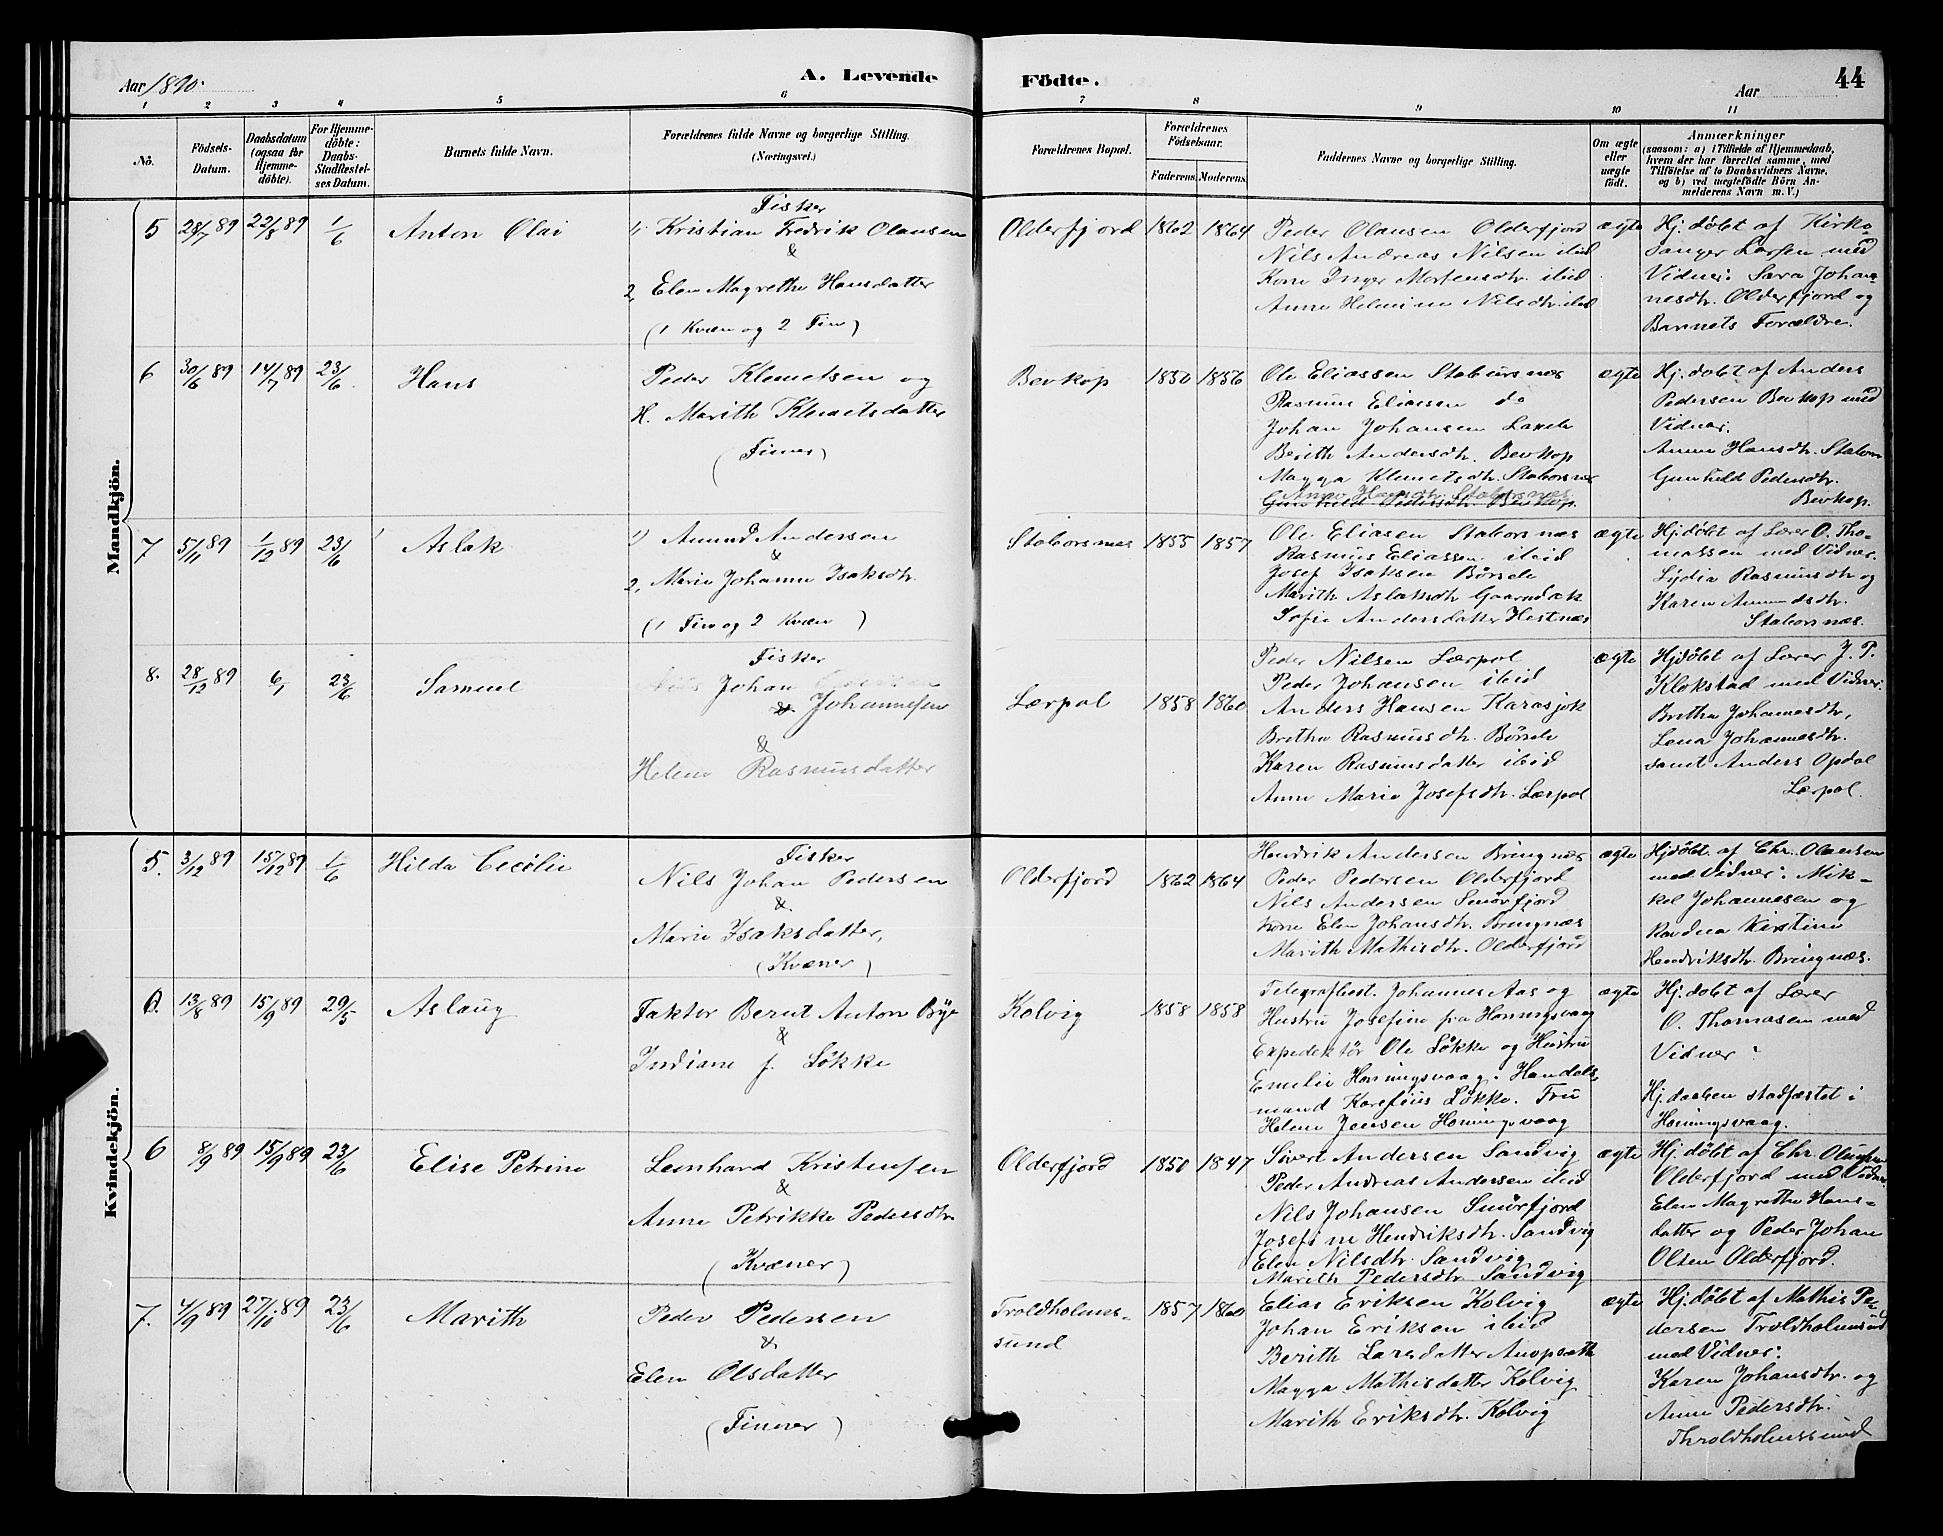 Aar 1890.
A. Levende
Födte.
Aar
44
1 2 3 4 5 6 7 8 9 10 11
No.
Födsels-
Datum.
Daabsdatum
(ogsaa for
Hjemme-
döbte).
For Hjemme-
döbte:
Daabs-
Stadfæstel-
ses Datum.
Barnets fulde Navn.
Forældrenes fulde Navne og borgerlige Stilling.
(Næringsvei.)
Forældrenes Bopæl.
Forældrenes
Födselsaar.
Faderens. Moderens.
Faddernes Navne og borgerlige Stilling.
Om ægte
eller
uægte
födt.
Anmærkninger
(saasom: a) i Tilfælde af Hjemmedaab,
hvem der har forrettet samme, med
Tilföielse af to Daabsvidners Navne,
og b) ved uægtefödte Börn An-
melderens Navn m. V.)
Mandkjön.
5 28/7 89 22/8 89 1/6 Anton Olai
Fisker
1, Kristian Fredrik Olausen
&
2, Elen Magrethe Hansdatter
(1 Kvæn og 2 Fin)
Olderfjord 1862 1864
Peder Olausen Olderfjord
Nils Andreas Nilsen ibid
Kone Inger Mortensdtr. ibid
Anne Helmine Nilsdtr. ibid
ægte
Hj. döbt af Kirke-
sanger Larsen med
Vidner: Sara Johan-
nesdtr. Olderfjord og
Barnets Forældre.
6 30/6 89 14/7 89 23/6 Hans
Peder Klemetsen og
H. Marith Klemetsdatter
(Finner)
Bevkop 1850 1856
Ole Eliassen Stabursnes
Rasmus Eliassen do
Johan Johansen Lande
Berith Andersdtr. Bevkop
Magga Klemetsdtr. Staborsnes
Anne Hansdtr. Staborsnes
Gunhild Pedersdtr. Bevkop.
ægte
Hj. döbt af Anders
Pedersen Bevkop med
Vidner.
Anne Hansdtr. Stabors
Gunhild Pedersdtr.
Bevkop.
7 5/11 89 1/12 89 23/6 Aslak
1) Amund Andersen
&
2, Marie Johanne Isaksdtr.
(1 Fin og 2 Kvæn)
Staborsnes 1855 1857
Ole Eliasen Staborsnes
Rasmus Eliassen ibid
Josef Isaksen Börsele
Marith Aslaksdtr. Gaarndak
Sofie Andersdatter Hestnes
ægte
Hj. döbt af Lærer O. Tho-
massen med Vidner.
Lydia Rasmusdtr og
Karen Amundsdtr.
Staborsnes.
8. 28/12 89 6/1 23/6 Samuel
Fisker
Nils Johan
Johannesen
&
Helene Rasmusdatter
Lærpol 1858 1860
Peder Nilsen Lærpol
Peder Johansen ibid
Anders Hansen Karasjok
Brithe Rasmusdtr. Börsele
Karen Rasmusdatter ibid
Anne Marie Josefsdtr. Lærpol
ægte
Hj döbt af Lærer J. P.
Klokstad med Vidner.
Brithe Johannesdtr,
Lena Johannesdtr.
samt Anders Opdal
Lærpol.
Kvindekjön.
5. 3/12 89 15/12 89 1/6 Hilda Cecilie
Fisker
Nils Johan Pedersen
&
Marie Isaksdatter,
(Kvæner)
Olderfjord 1862 1864
Hendrik Andersen Bringnæs
Peder Pedersen Olderfjord
Nils Andersen Smörfjord
Kone Elen Johansdtr. Bringnæs
Marith Mathisdtr. Olderfjord
ægte
Hj döbt af Chr. Olaussen
med Vidner: Mik-
kel Johannesen og
Kirstine
Hendriksdtr. Bringnæs.
13/8 89 15/9 89 29/5 Aslaug
Faktor Bernt Anton Bye
&
Indiane f. Lökke
Kolvig 1858 1858
Telegrafbest. Johannes Aas og
Hustru Josefine fra Honningsvaag
Expeditör Ole Lökke og Hustru
Emelie Honningsvaag. Handels-
mand Karefius Lökke. Fru
Helene Jensen Honningsvaag
ægte
Hj. döbt af Lærer
O. Thomasen med
Vidner:
Hj. daaben stadfæstet i
Honningsvaag.
6 8/9 89 15/9 89 23/6 Elise Petrine
Leonhard Kristensen
&
Anne Petrikke Pedersdtr
(Kvæner)
Olderfjord 1850 1847
Sivert Andersen Sandvig
Peder Andreas Andersen ibid
Nils Johansen Smörfjord
Josefine Hendriksdtr. Sandvig
Elen Nilsdtr. Sandvig
Marith Pedersdtr. Sandvig
ægte
Hj. döbt af Chr. Olaussen
Olderfjord med Vidner
Elen Magrethe Hans-
datter og Peder Johan
Olsen Olderfjord.
7. 4/9 89 27/10 89 23/6 Marith
Peder Pedersen
&
Elen Olsdatter
(Finner)
Troldholmes-
sund
1857 1860
Elias Eriksen Kolvig
Johan Eriksen ibid
Berith Larsdatter
Magga Mathisdatter Kolvig
Marith Eriksdtr. Kolvig
ægte
Hj. döbt af Mathis Pe-
dersen Troldholmsund
med Vidner:
Karen Johansdtr. og
Anne Pedersdtr.
Throldholmssund